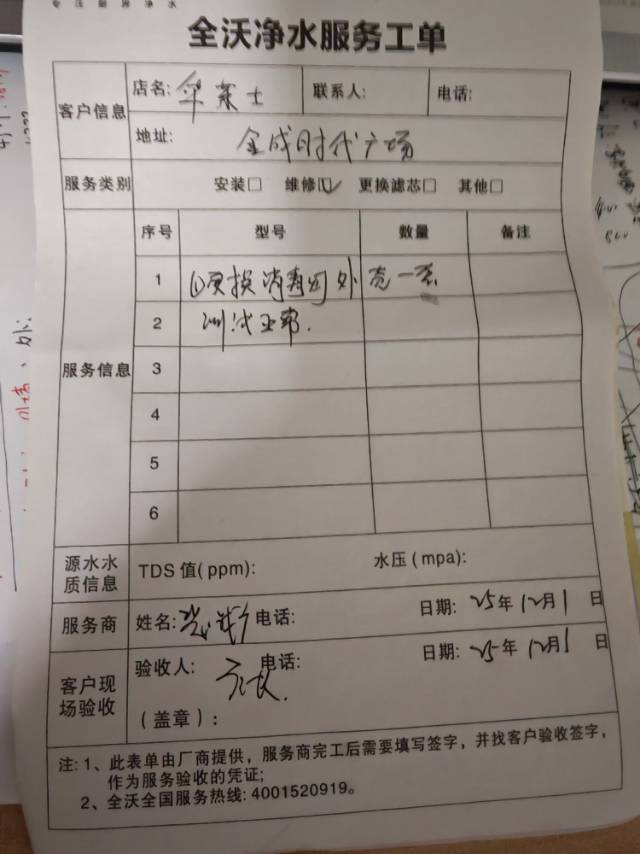 专注厨房净水
全沃净水服务工单
客户信息
店名: 华莱士 联系人: 电话:
地址: 金成时代广场
服务类别 安装□ 维修☑ 更换滤芯□ 其他□
服务信息
序号 型号 数量 备注
1 更换 外壳一套
2 测试正常.
3
4
5
6
源水水质信息 TDS 值(ppm): 水压(mpa):
服务商 姓名: 电话: 日期: 25年12月1日
客户现场验收 验收人: 电话: 日期: 25年12月1日
(盖章):
注: 1、此表单由厂商提供，服务商完工后需要填写签字，并找客户验收签字，
作为服务验收的凭证;
2、全沃全国服务热线: 4001520919。